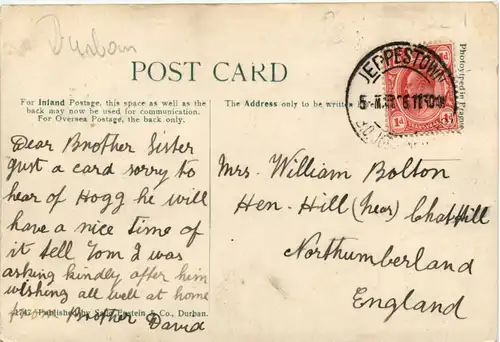 Durban
POST CARD
For Inland Postage, this space as well as the
back may now be used for communication.
For Oversea Postage, the back only.
The Address only to be written
JEPPESTOWN
1d
Dear Brother Sister
Just a card sorry to
hear of Hogg he will
have a nice time of
it tell Tom I was
asking kindly after him
wishing all well at home
from Brother David
Published by Sally Epstein & Co., Durban.
Mrs. William Bolton
Hen-Hill (near) Chathill
Northumberland
England